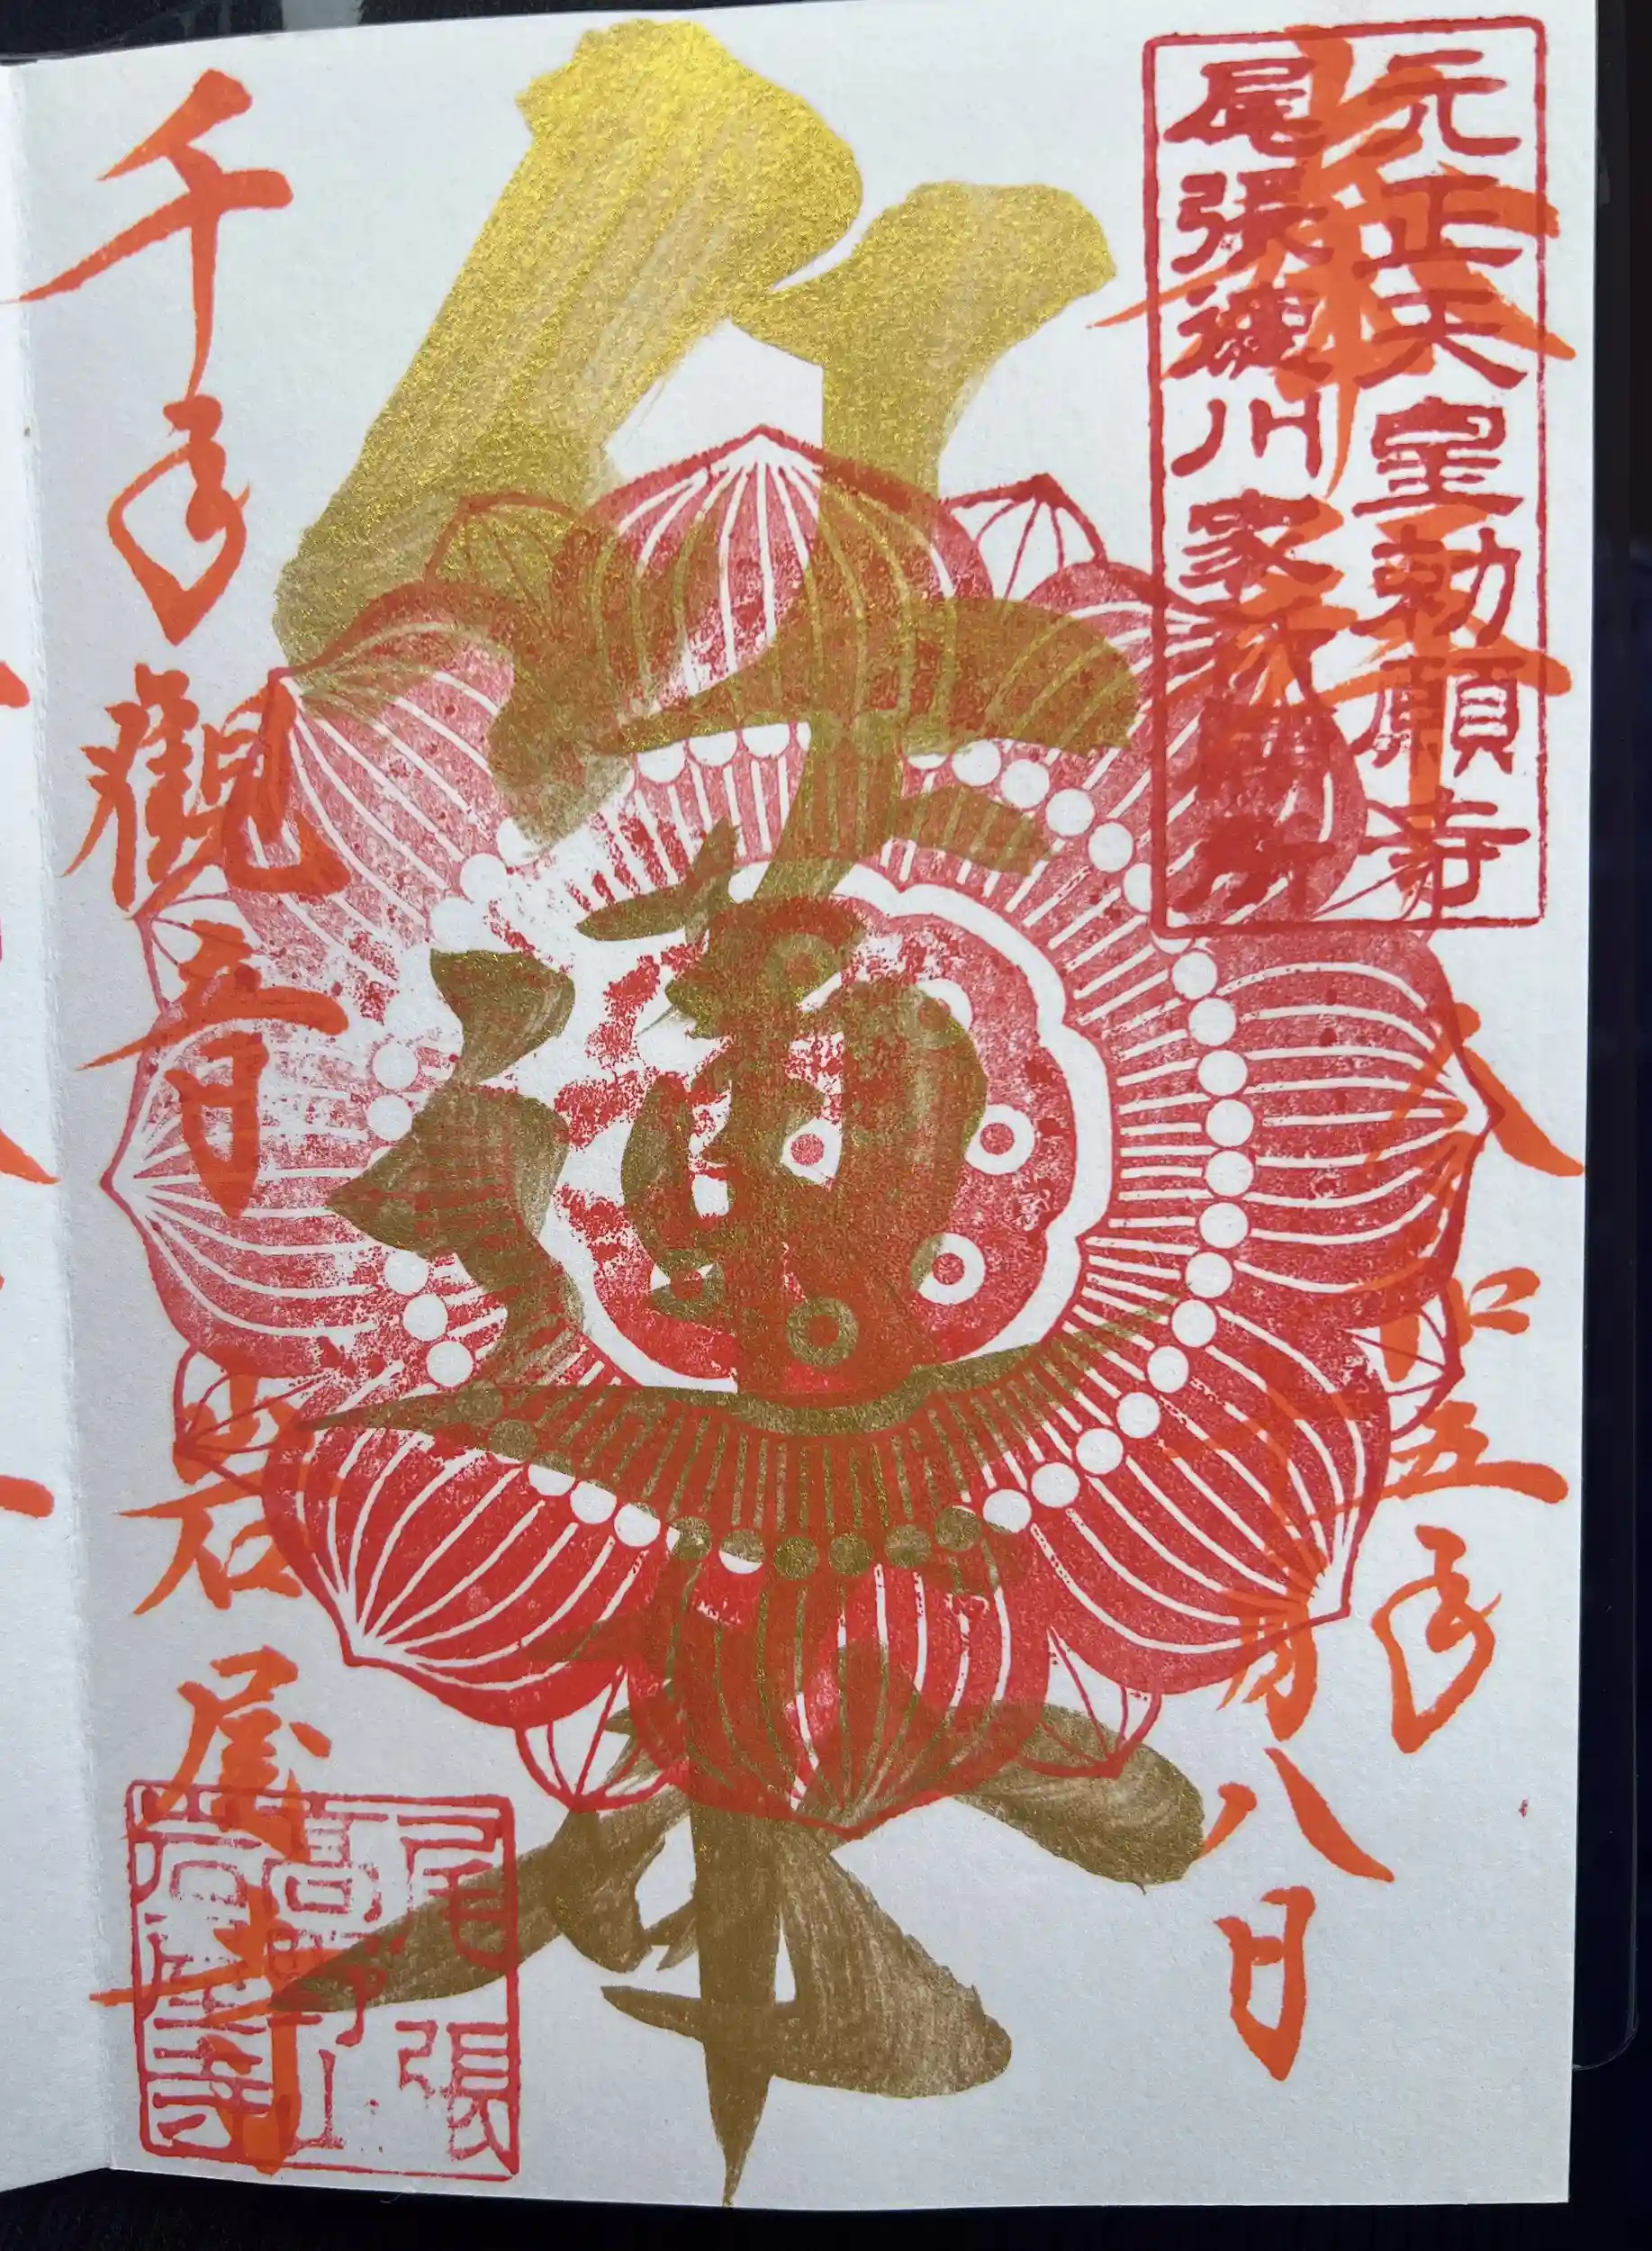 元正天皇勅願寺
尾張徳川家祈願所
奉拝
令和五年
月八日
千手觀音
岩屋寺
尾張
高野山
岩屋寺